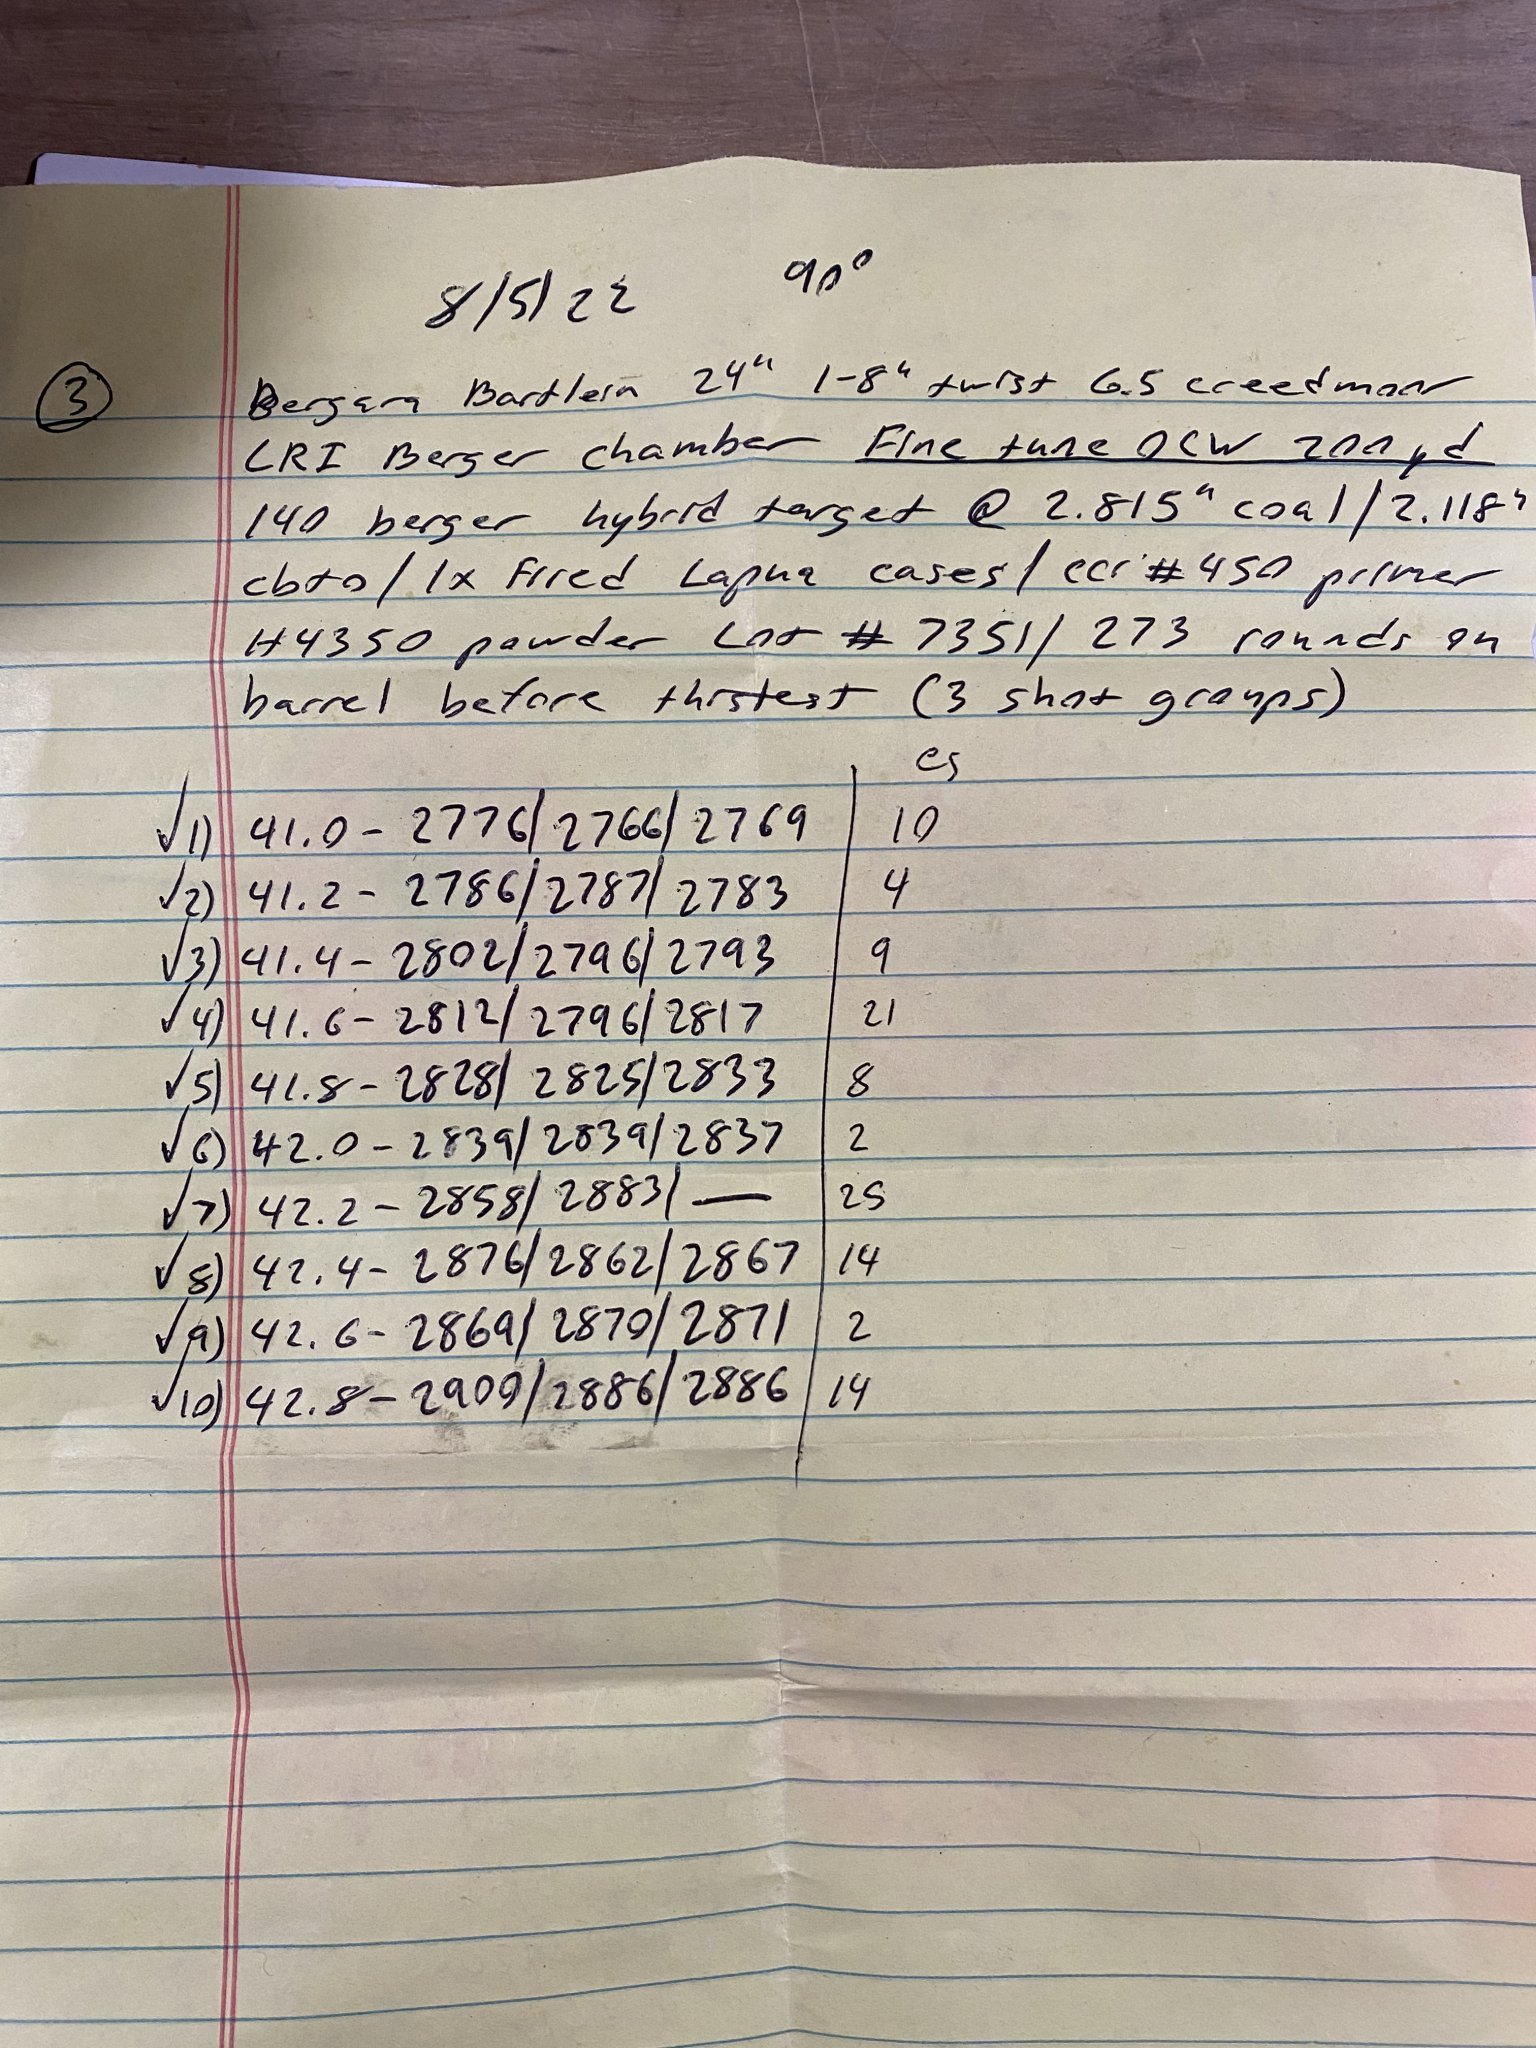 8/5/22 90°
3 Bergara Bartlein 24" 1-8" twist 6.5 creedmoor
LRI Berger chamber Fine tune OCW 200 yd
140 berger hybrid target @ 2.815" coal/2.118"
cbto/1x Fired Lapua cases/cci #450 primer
H4350 powder Lot # 7351/273 rounds on
barrel before this test (3 shot groups)
es
√1) 41.0 - 2776/2766/2769 | 10
√2) 41.2 - 2786/2787/2783 | 4
√3) 41.4 - 2802/2796/2793 | 9
√4) 41.6 - 2812/2796/2817 | 21
√5) 41.8 - 2828/2825/2833 | 8
√6) 42.0 - 2839/2839/2837 | 2
√7) 42.2 - 2858/2883/— | 25
√8) 42.4 - 2876/2862/2867 | 14
√9) 42.6 - 2869/2870/2871 | 2
√10) 42.8 - 2900/2886/2886 | 14